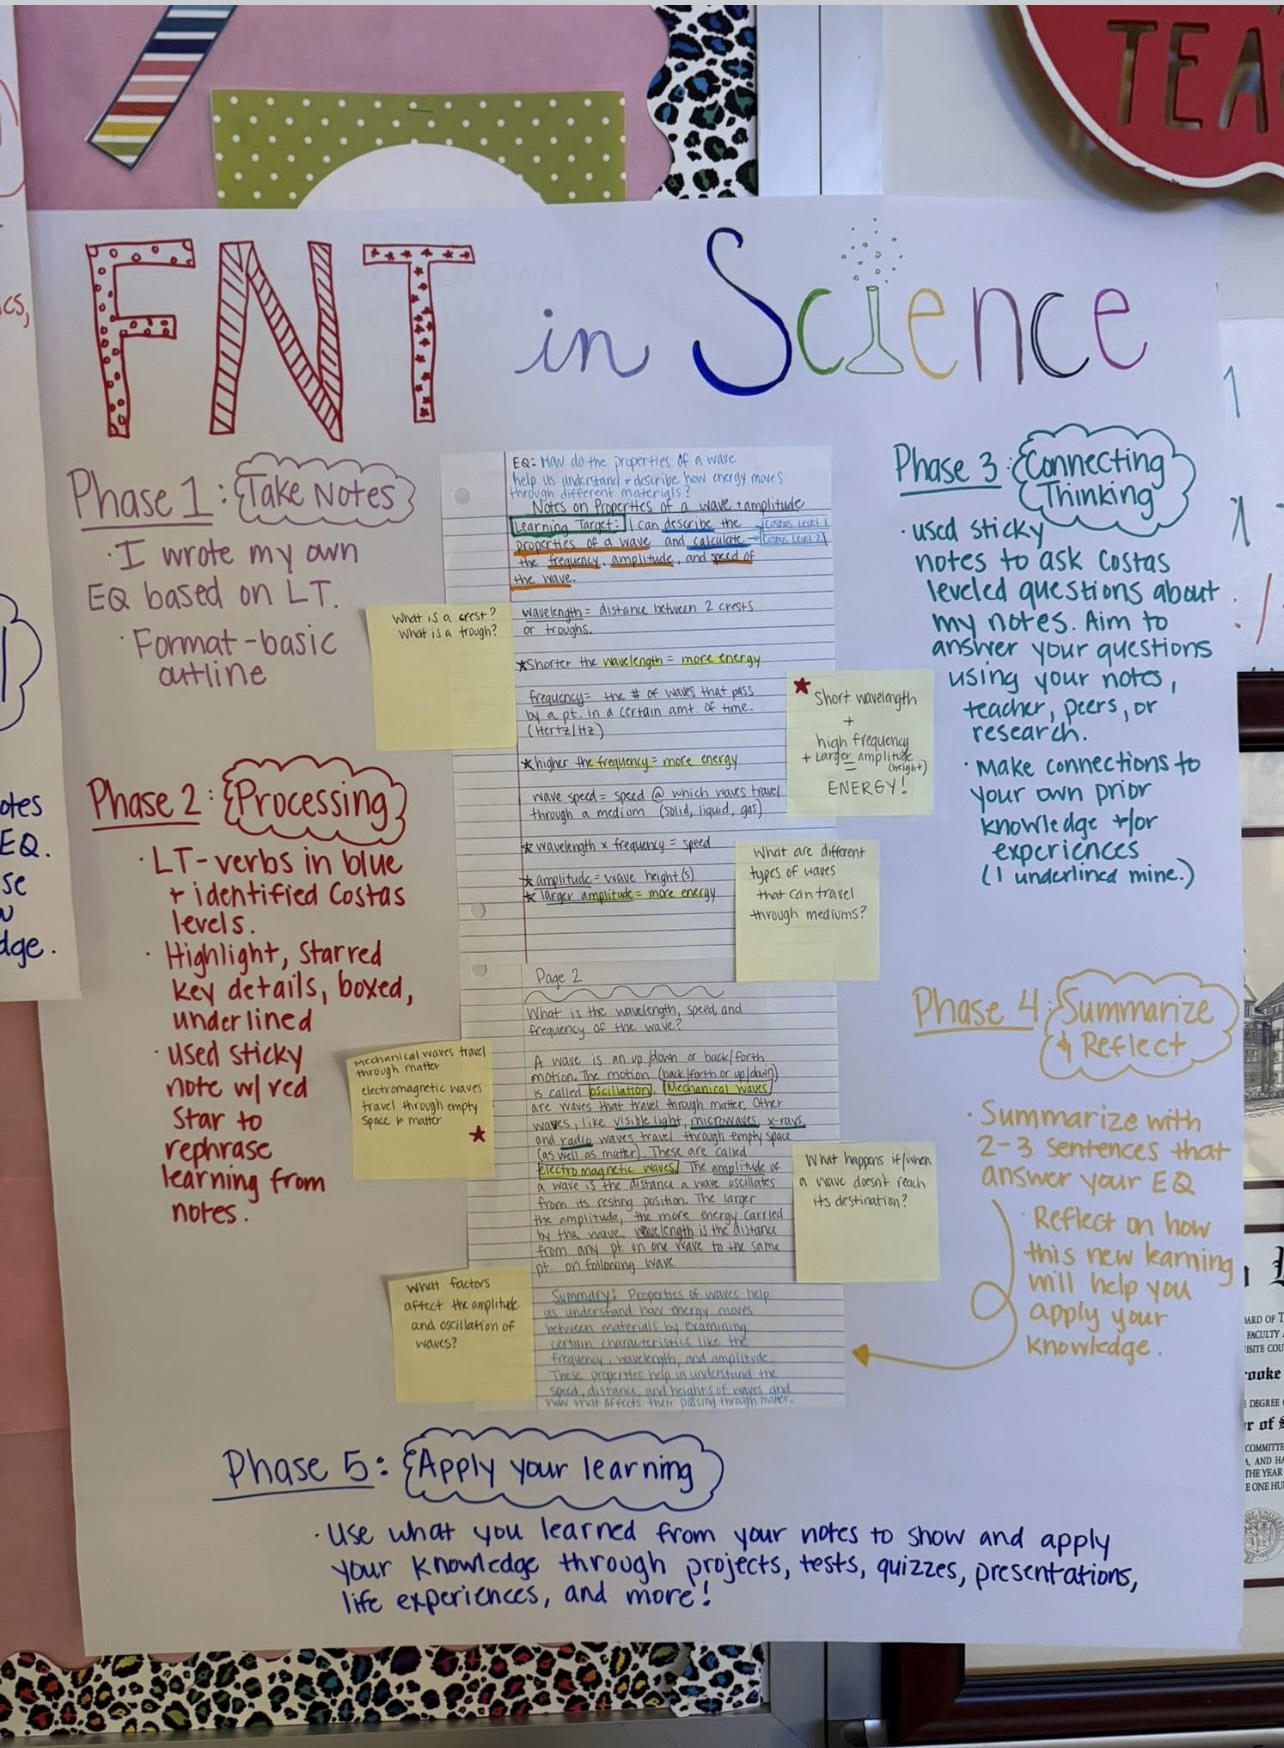 TEA
FNT in Science
Phase 1: Take Notes
· I wrote my own
EQ based on LT.
· Format-basic
outline
Phase 2: Processing
· LT-verbs in blue
+ identified Costas
levels.
· Highlight, Starred
key details, boxed,
underlined
· used sticky
note w/red
Star to
rephrase
learning from
notes.
EQ: How do the properties of a wave
help us understand + describe how energy moves
through different materials?
Notes on Properties of a wave + amplitude
Learning Target: I can describe the → Costas Level 1
properties of a wave and calculate → Costas Level 2
the frequency, amplitude, and speed of
the wave.
wavelength = distance between 2 crests
or troughs.
★Shorter the wavelength = more energy
frequency = the # of waves that pass
by a pt. in a certain amt. of time.
(Hertz/Hz)
★higher the frequency = more energy
wave speed = speed @ which waves travel
through a medium (solid, liquid, gas)
★ wavelength x frequency = speed
★ amplitude = wave height(s)
★ larger amplitude = more energy
What is a crest?
What is a trough?
★ Short wavelength
+
high frequency
+ Larger amplitude
(height)
=
ENERGY!
What are different
types of waves
that can travel
through mediums?
Page 2
What is the wavelength, speed, and
frequency of the wave?
A wave is an up/down or back/forth
motion. The motion (back/forth or up/down)
is called oscillation. Mechanical waves
are waves that travel through matter. Other
waves, like visible light, microwaves, x-rays
and radio waves travel through empty space
(as well as matter). These are called
electromagnetic waves. The amplitude of
a wave is the distance a wave oscillates
from its resting position. The larger
the amplitude, the more energy carried
by the wave. wavelength is the distance
from any pt. on one wave to the same
pt. on following wave.
Summary: Properties of waves help
us understand how energy moves
between materials by examining
certain characteristics like the
frequency, wavelength, and amplitude.
These properties help us understand the
speed, distance, and heights of waves and
how that affects their passing through matter.
Mechanical waves travel
through matter
electromagnetic waves
travel through empty
space & matter
★
What happens if/when
a wave doesn't reach
its destination?
What factors
affect the amplitude
and oscillation of
waves?
Phase 3: Connecting
Thinking
· used sticky
notes to ask Costas
leveled questions about
my notes. Aim to
answer your questions
using your notes,
teacher, peers, or
research.
· Make connections to
your own prior
knowledge +/or
experiences
(I underlined mine.)
Phase 4: Summarize
& Reflect
· Summarize with
2-3 sentences that
answer your EQ
· Reflect on how
this new learning
will help you
apply your
knowledge.
Phase 5: Apply your learning
· Use what you learned from your notes to show and apply
your knowledge through projects, tests, quizzes, presentations,
life experiences, and more!
cs,
otes
EQ.
se
dge.
ARD OF T
FACULTY
ISITE COU
ooke
DEGREE
r of S
COMMITTE
, AND HA
THE YEAR
E ONE HU